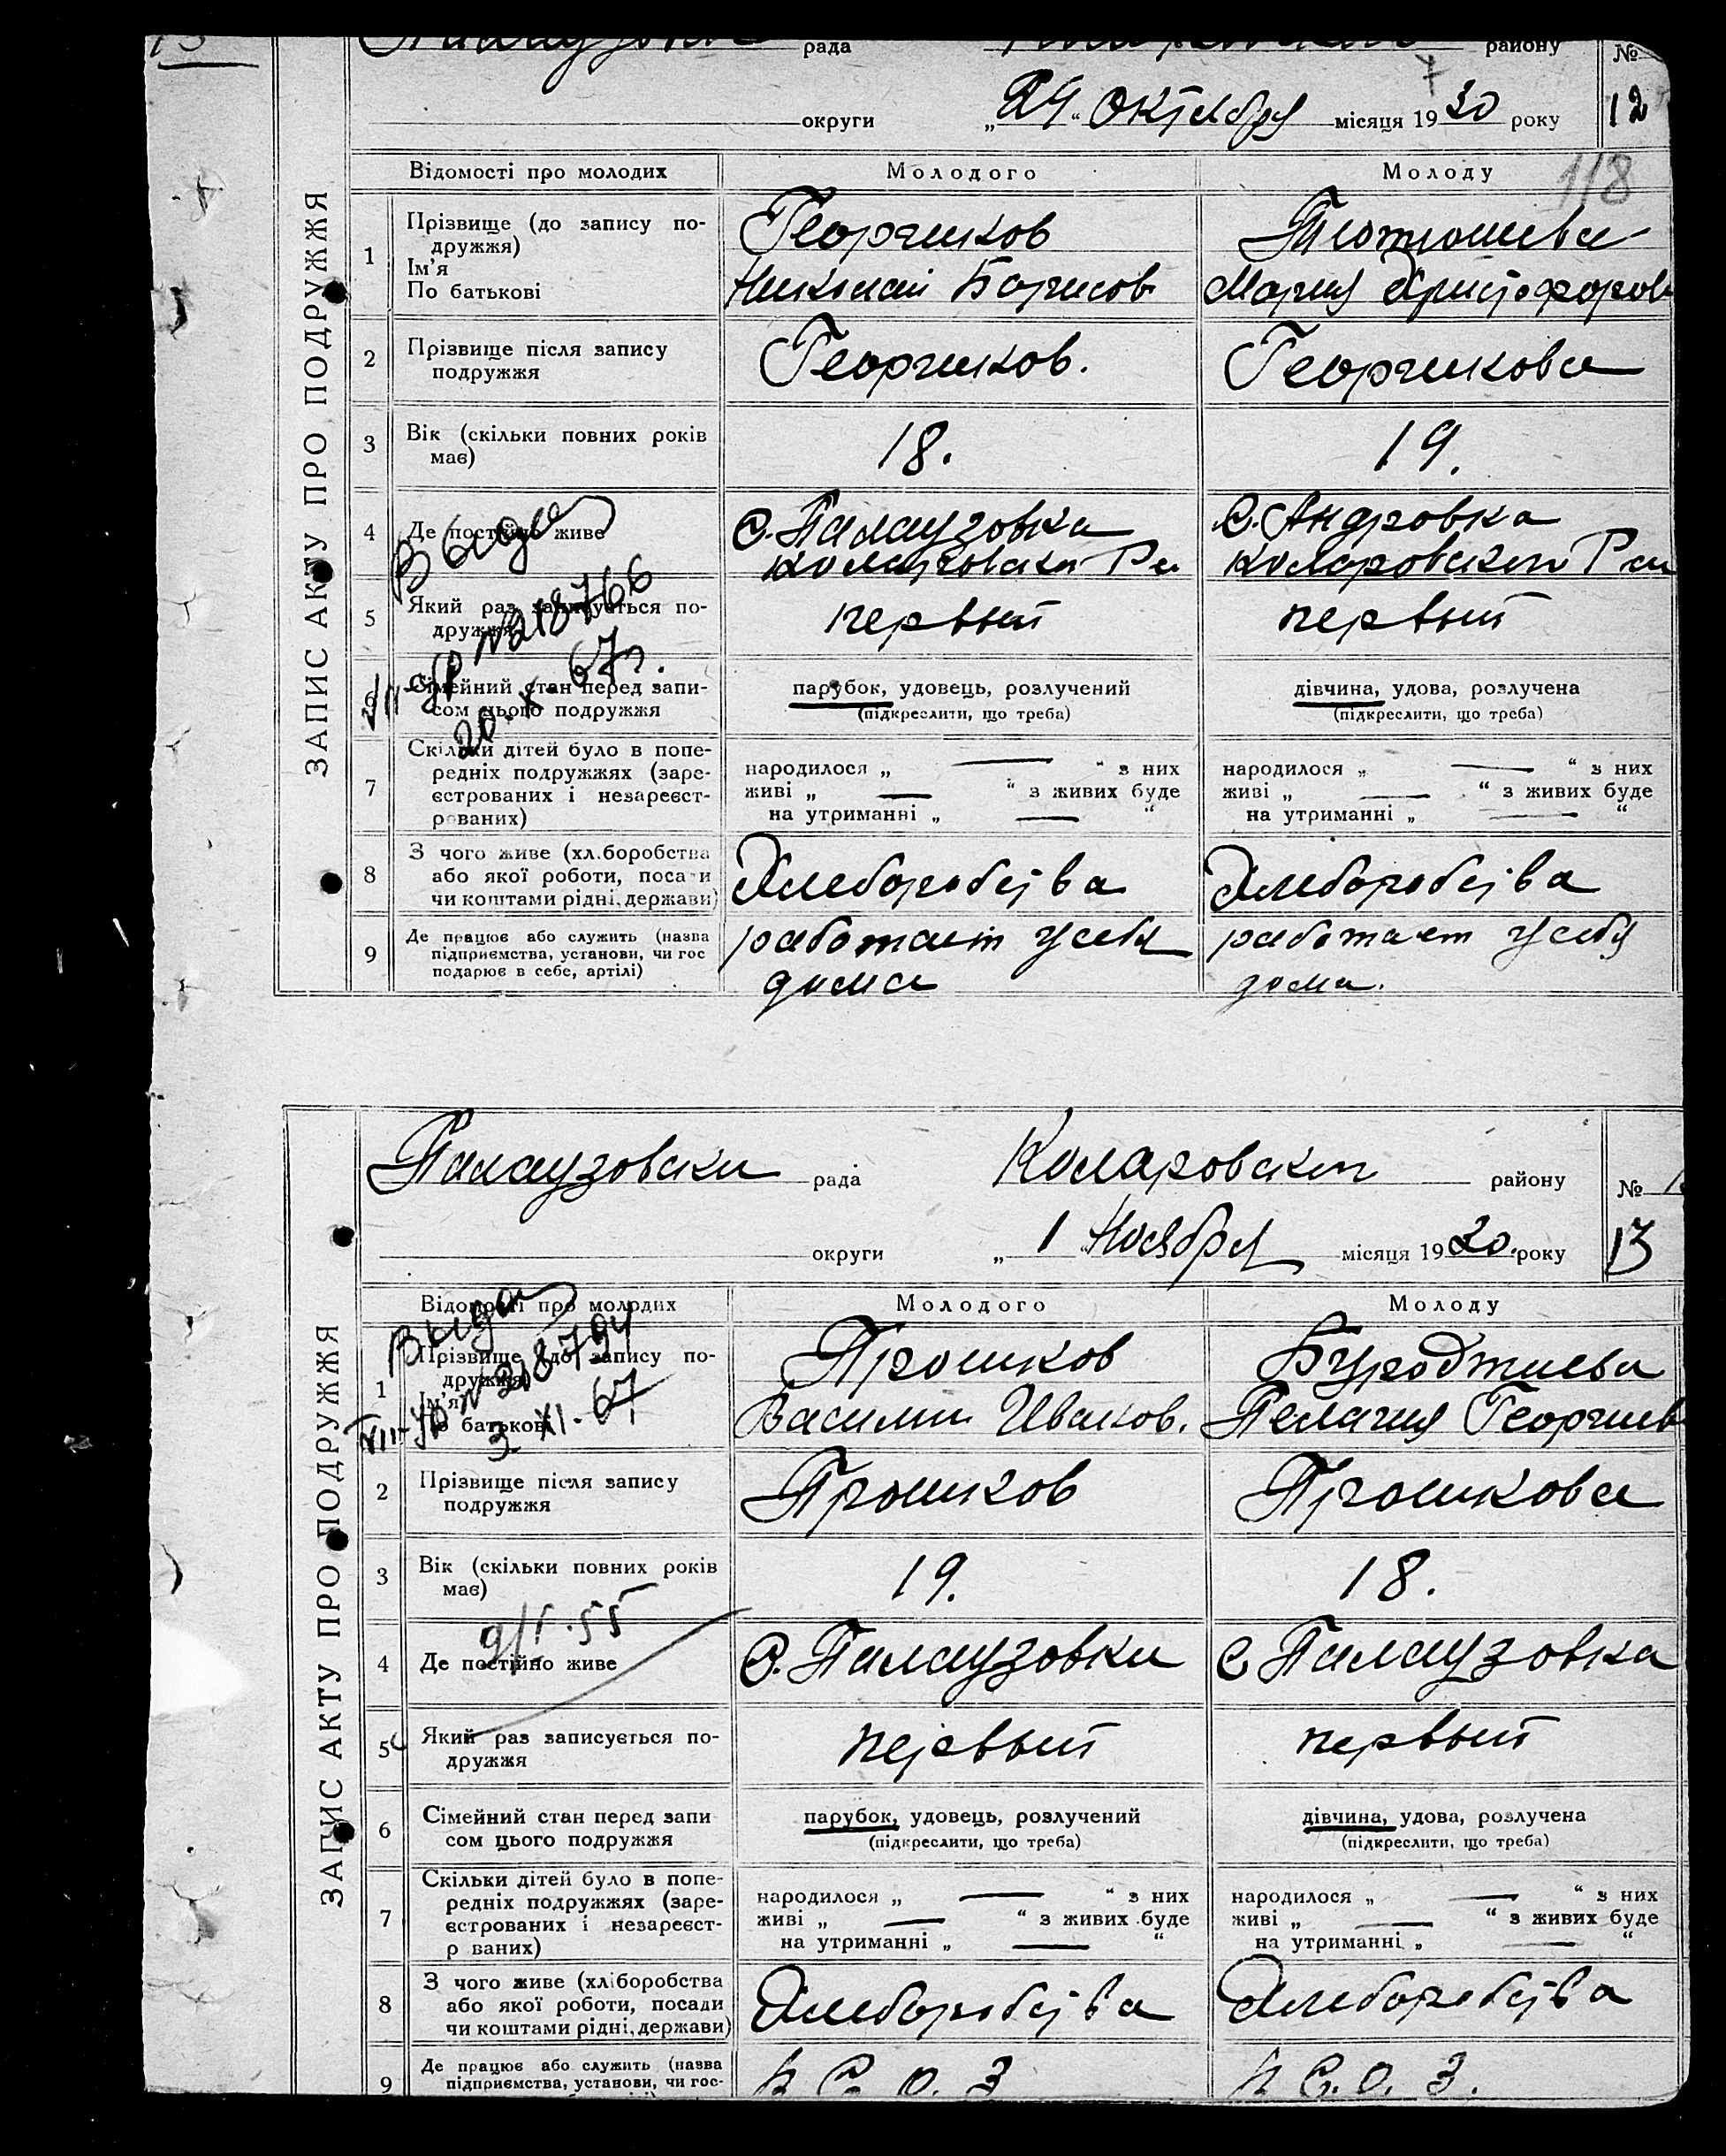 рада району №
округи „24“ Октября місяця 1930 року 12
118
ЗАПИС АКТУ ПРО ПОДРУЖЖЯ
Відомості про молодих Молодого Молоду
1 Прізвище (до запису по-
дружжя)
Ім'я
По батькові
Георгиков
Николай Борисов
Мария Христофоров
2 Прізвище після запису
подружжя
Георгиков.
Георгикова
3 Вік (скільки повних років
має)
18.
19.
4 Де постійно живе
С. Палаузовка
Коларовскаго Ра
С. Андровка
Коларовского Ра
5 Який раз записується по-
дружжя
первый
первый
Выдан
№218766
20.X 67г.
6 Сімейний стан перед запи-
сом цього подружжя
парубок, удовець, розлучений
(підкреслити, що треба)
дівчина, удова, розлучена
(підкреслити, що треба)
7 Скільки дітей було в попе-
редніх подружжях (заре-
єстрованих і незареєст-
рованих)
народилося „ — “ з них
живі „ — “ з живих буде
на утриманні „ — “
народилося „ — “ з них
живі „ — “ з живих буде
на утриманні „ — “
8 З чого живе (хл.боробства
або якої роботи, посади
чи коштами рідні, держави)
Хлеборобства
Хлеборобства
9 Де працює або служить (назва
підприємства, установи, чи гос
подарює в себе, артілі)
работает у себя
дома
работает у себя
дома.
ЗАПИС АКТУ ПРО ПОДРУЖЖЯ
Палаузовска рада Коларовского району №
округи „1“ Ноября місяця 1930. року 13
Відомості про молодих Молодого Молоду
Выдан
№218794
3 XI. 67
1 Прізвище (до запису по-
дружжя)
Ім'я
По батькові
Прошков
Василий Иванов.
Бурджиева
Пелагия Георгиев
2 Прізвище після запису
подружжя
Прошков
Прошкова
3 Вік (скільки повних років
має)
19.
18.
9/I.55
4 Де постійно живе
С. Палаузовка
С Палаузовка
5 Який раз записується по-
дружжя
первый
первый
6 Сімейний стан перед запи
сом цього подружжя
парубок, удовець, розлучений
(підкреслити, що треба)
дівчина, удова, розлучена
(підкреслити, що треба)
7 Скільки дітей було в попе-
редніх подружжях (заре-
єстрованих і незареєст-
р ваних)
народилося „ — “ з них
живі „ — “ з живих буде
на утриманні „ — “
народилося „ — “ з них
живі „ — “ з живих буде
на утриманні „ — “
8 З чого живе (хліборобства
або якої роботи, посади
чи коштами рідні, держави)
Хлеборобства
Хлеборобства
9 Де працює або служить (назва
підприємства, установи, чи гос-
в С. О. З
в С. О. З.